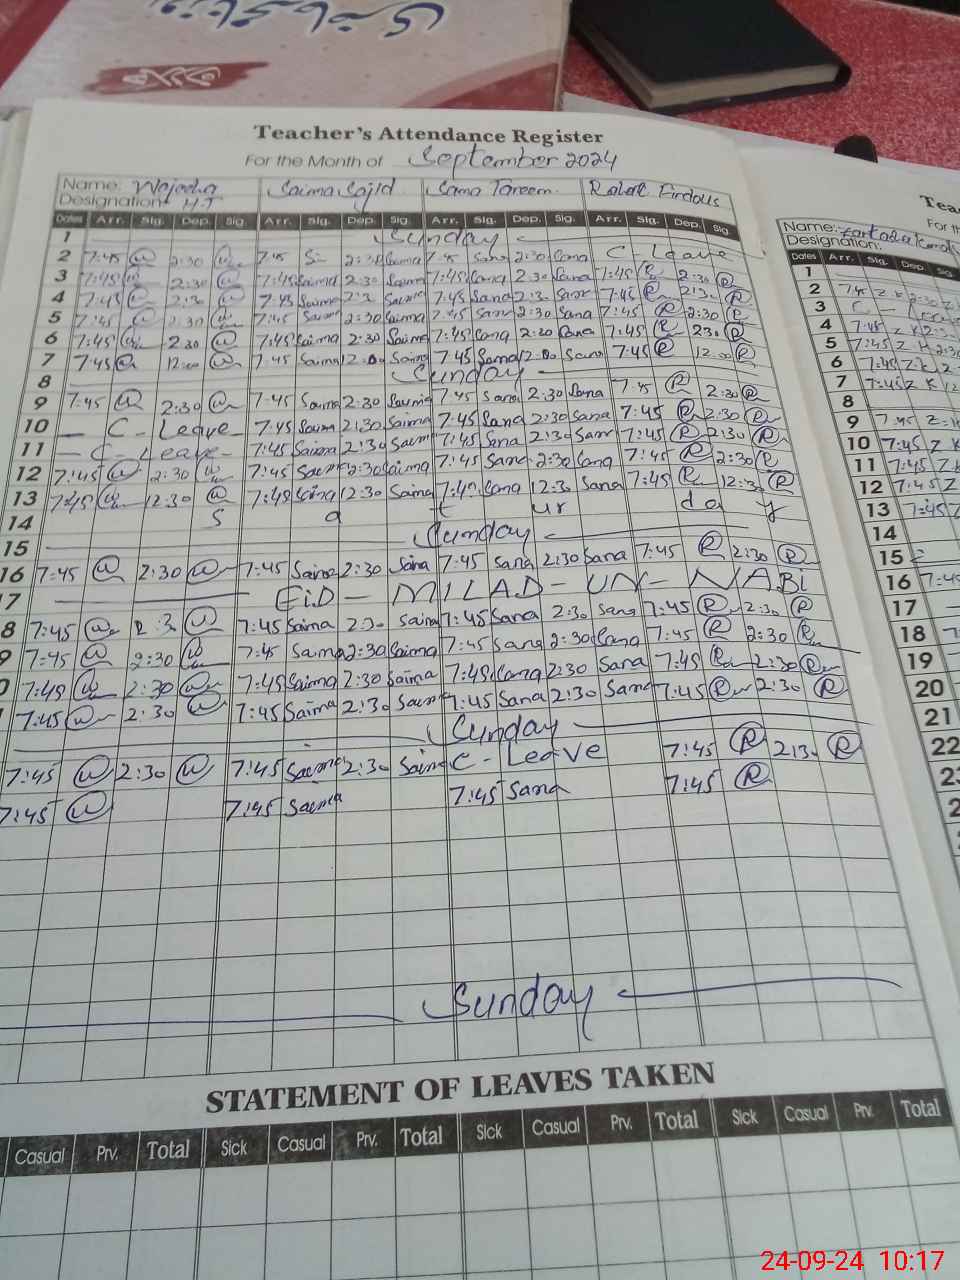 Teacher's Attendance Register
For the Month of September 2024
Name: Wajeeha Saima Sajid Sama Tareem Rahat Firdous
Designation H.T
Dates Arr. Sig. Dep. Sig. Arr. Sig. Dep. Sig. Arr. Sig. Dep. Sig. Arr. Sig. Dep. Sig.
1 Sunday
2 7:45 W 2:30 W 7:45 2:30 Saima 7:45 Sana 2:30 Sana C - Leave
3 7:45 W 2:30 W 7:45 Saima 2:30 Saima 7:45 Sana 2:30 Sana 7:45 R 2:30 R
4 7:45 W 2:30 W 7:45 Saima 2:3 Saima 7:45 Sana 2:30 Sana 7:45 R 2:30 R
5 7:45 W 2:30 W 7:45 Saima 2:30 Saima 7:45 Sana 2:30 Sana 7:45 R 2:30 R
6 7:45 W 2:30 W 7:45 Saima 2:30 Saima 7:45 Sana 2:20 Sana 7:45 R 230 R
7 7:45 W 12:00 W 7:45 Saima 12:00 Saima 7:45 Sana 12:00 Sana 7:45 R 12:00 R
8 Sunday
9 7:45 W 2:30 W 7:45 Saima 2:30 Saima 7:45 Sana 2:30 Sana 7:45 R 2:30 R
10 C - Leave 7:45 Saima 2:30 Saima 7:45 Sana 2:30 Sana 7:45 R 2:30 R
11 C - Leave 7:45 Saima 2:30 Saima 7:45 Sana 2:30 Sana 7:45 R 2:30 R
12 7:45 W 2:30 W 7:45 Saima 2:30 Saima 7:45 Sana 2:30 Sana 7:45 R 2:30 R
13 7:45 W 12:30 W 7:45 Saima 12:30 Saima 7:45 Sana 12:30 Sana 7:45 R 12:30 R
14 S a t ur da y
15 Sunday
16 7:45 W 2:30 W 7:45 Saima 2:30 Saima 7:45 Sana 2:30 Sana 7:45 R 2:30 R
17 EiD - MILAD - UN - NABI
8 7:45 W 2:30 W 7:45 Saima 2:30 Saima 7:45 Sana 2:30 Sana 7:45 R 2:30 R
9 7:45 W 2:30 W 7:45 Saima 2:30 Saima 7:45 Sana 2:30 Sana 7:45 R 2:30 R
0 7:45 W 2:30 W 7:45 Saima 2:30 Saima 7:45 Sana 2:30 Sana 7:45 R 2:30 R
7:45 W 2:30 W 7:45 Saima 2:30 Saima 7:45 Sana 2:30 Sana 7:45 R 2:30 R
Sunday
7:45 W 2:30 W 7:45 Saima 2:30 Saima C - Leave 7:45 R 2:30 R
7:45 W 7:45 Saima 7:45 Sana 7:45 R
Sunday
STATEMENT OF LEAVES TAKEN
Casual Prv. Total Sick Casual Prv. Total Sick Casual Prv. Total Sick Casual Prv. Total
Tea
For th
Name:
Designation:
Dates Arr. Sig. Dep. Sig.
1
2 7:45 Z K 2:30
3 C - Leave
4 7:45 Z K 2:3
5 7:45 Z K 2:30
6 7:45 Z K 2
7 7:45 Z K 12
8
9 7:45 Z
10 7:45 Z K
11 7:45 Z K
12 7:45 Z
13 7:45 Z
14
15
16 7:45
17
18 7
19
20
21
22
23
24-09-24 10:17